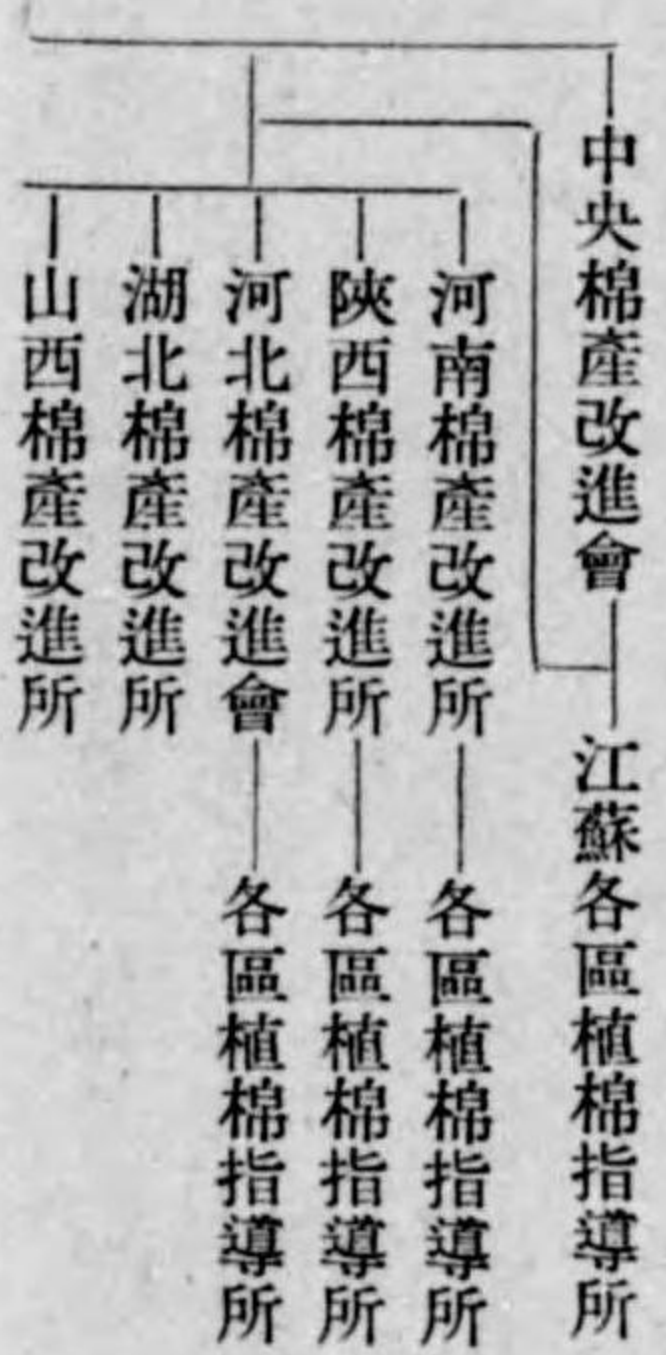 中央棉產改進會
江蘇各區植棉指導所
河南棉產改進所
各區植棉指導所
陝西棉產改進所
各區植棉指導所
河北棉產改進會
各區植棉指導所
湖北棉產改進所
山西棉產改進所